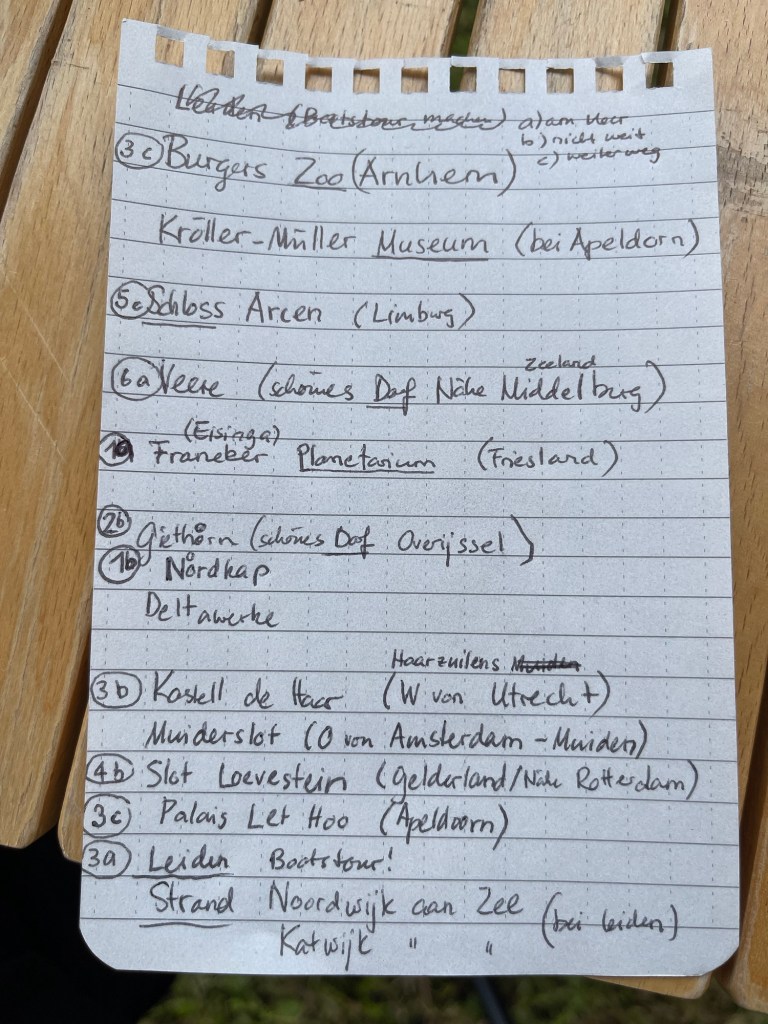 Leiden (Bootstour machen) a) am Meer
b) nicht weit
c) weiter weg
3c Burgers Zoo (Arnhem)
Kröller-Müller Museum (bei Apeldorn)
5c Schloss Arcen (Limburg)
Zeeland
6a Veere (schönes Dorf Nähe Middelburg)
(Eisinga)
1a Franeker Planetarium (Friesland)
2b Giethorn (schönes Dorf Overijssel)
1b Nordkap
Deltawerke
Haarzuilens Muiden
3b Kastell de Haar (W von Utrecht)
Muiderslot (O von Amsterdam - Muiden)
4b Slot Loevestein (Gelderland/Nähe Rotterdam)
3c Palais Let Hoo (Apeldoorn)
3a Leiden Bootstour!
Strand Noordwijk aan Zee (bei Leiden)
Katwijk " "